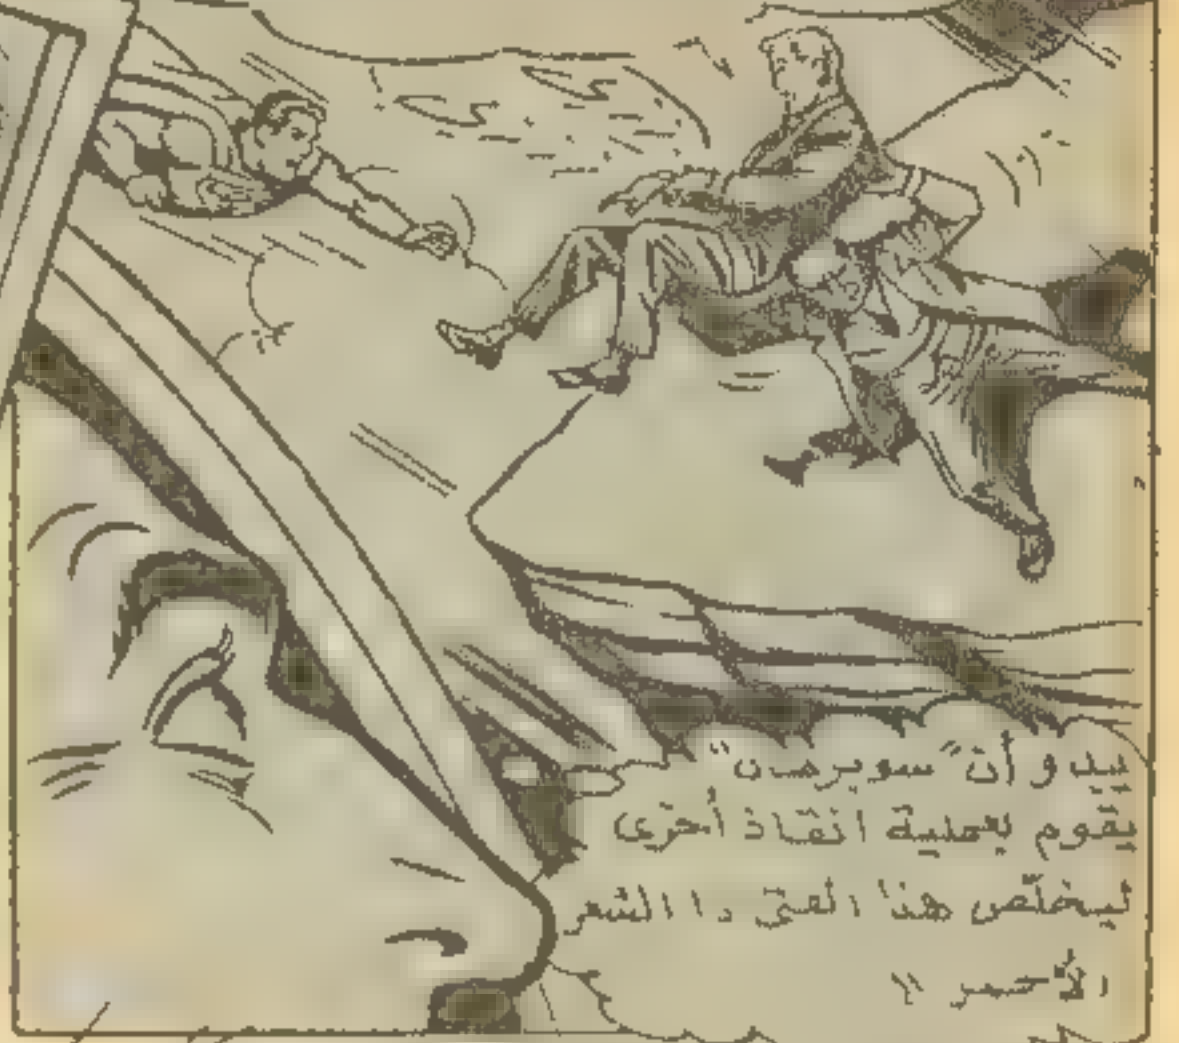 يبدو أن "سوبرمان"
يقوم بعملية انقاذ أخرى
ليخلّص هذا الفتى ذا الشعر
الأحمر !!